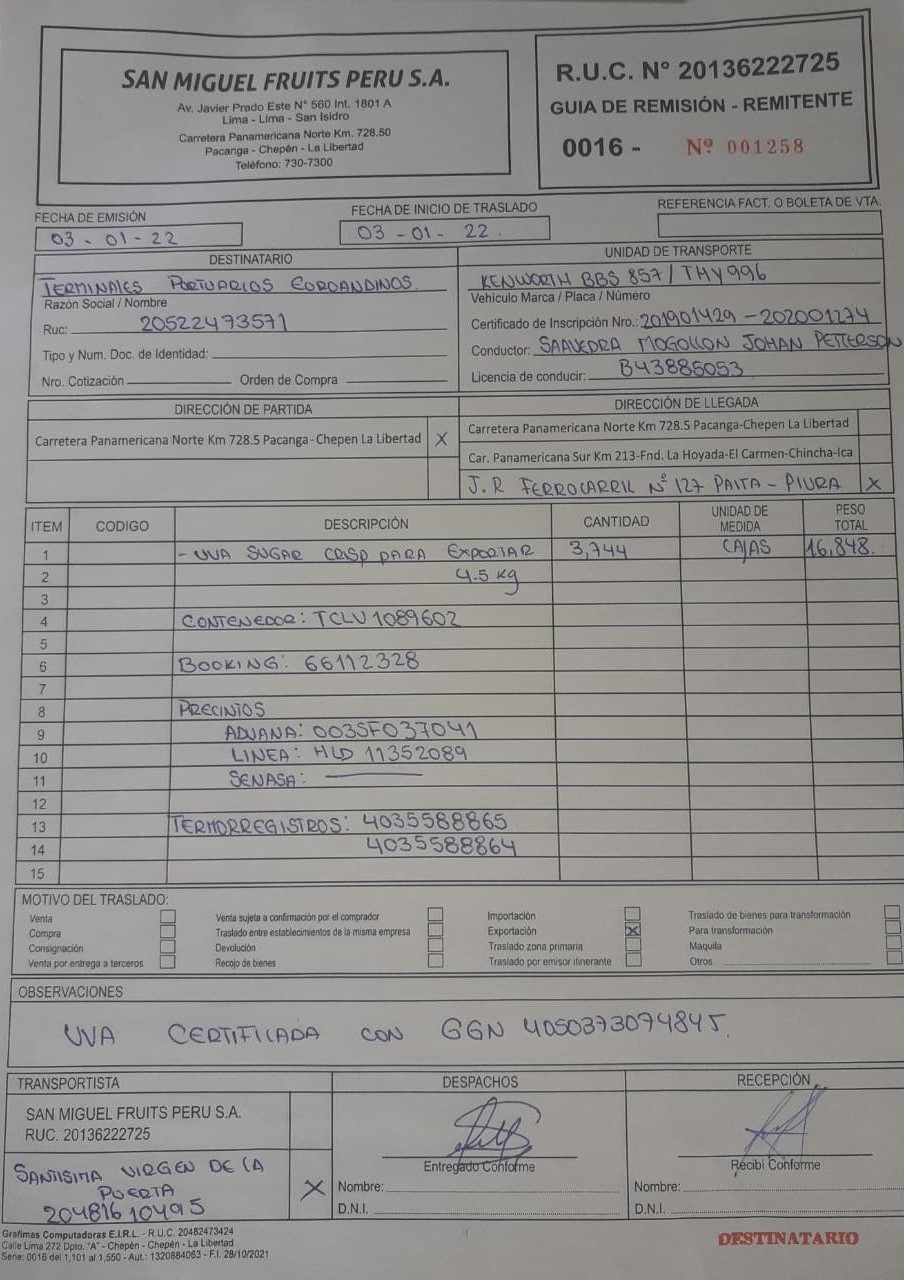 SAN MIGUEL FRUITS PERU S.A.
Av. Javier Prado Este N° 560 Int. 1801 A
Lima - Lima - San Isidro
Carretera Panamericana Norte Km. 728.50
Pacanga - Chepén - La Libertad
Teléfono: 730-7300
R.U.C. N° 20136222725
GUIA DE REMISIÓN - REMITENTE
0016 - Nº 001258
FECHA DE EMISIÓN
03 - 01 - 22
FECHA DE INICIO DE TRASLADO
03 - 01 - 22.
REFERENCIA FACT. O BOLETA DE VTA.
DESTINATARIO
TERMINALES PORTUARIOS EUROANDINOS.
Razón Social / Nombre
Ruc: 20522473571
Tipo y Num. Doc. de Identidad:
Nro. Cotización Orden de Compra
UNIDAD DE TRANSPORTE
KENWORTH BBS 857 / THY996
Vehículo Marca / Placa / Número
Certificado de Inscripción Nro.: 201901429 - 202001274
Conductor: SAAVEDRA MOGOLLON JOHAN PETTERSON
Licencia de conducir: B43886053
DIRECCIÓN DE PARTIDA
Carretera Panamericana Norte Km 728.5 Pacanga - Chepen La Libertad X
DIRECCIÓN DE LLEGADA
Carretera Panamericana Norte Km 728.5 Pacanga-Chepen La Libertad
Car. Panamericana Sur Km 213-Fnd. La Hoyada-El Carmen-Chincha-Ica
J.R FERROCARRIL Nº 127 PAITA - PIURA X
ITEM CODIGO DESCRIPCIÓN CANTIDAD UNIDAD DE MEDIDA PESO TOTAL
1 - UVA SUGAR CRISP PARA EXPORTAR 3,744 CAJAS 16,848.
2 4.5 kg
3
4 CONTENEDOR: TCLU1089602
5
6 BOOKING: 66112328
7
8 PRECINTOS
9 ADUANA: 003SF037041
10 LINEA: HLD 11352089
11 SENASA:
12
13 TERMORREGISTROS: 4035588865
14 4035588864
15
MOTIVO DEL TRASLADO:
Venta
Compra
Consignación
Venta por entrega a terceros
Venta sujeta a confirmación por el comprador
Traslado entre establecimientos de la misma empresa
Devolución
Recojo de bienes
Importación
Exportación X
Traslado zona primaria
Traslado por emisor itinerante
Traslado de bienes para transformación
Para transformación
Maquila
Otros
OBSERVACIONES
UVA CERTIFICADA CON GGN 4050373074845.
TRANSPORTISTA
SAN MIGUEL FRUITS PERU S.A.
RUC. 20136222725
SANTISIMA VIRGEN DE LA
PUERTA X
20481610495
DESPACHOS
Entregado Conforme
Nombre:
D.N.I.
RECEPCIÓN
Recibi Conforme
Nombre:
D.N.I.
Grafimas Computadoras E.I.R.L. - R.U.C. 20482473424
Calle Lima 272 Dpto. "A" - Chepén - Chepén - La Libertad
Serie: 0016 del 1,101 al 1,550 - Aut.: 1320884063 - F.I. 28/10/2021
DESTINATARIO